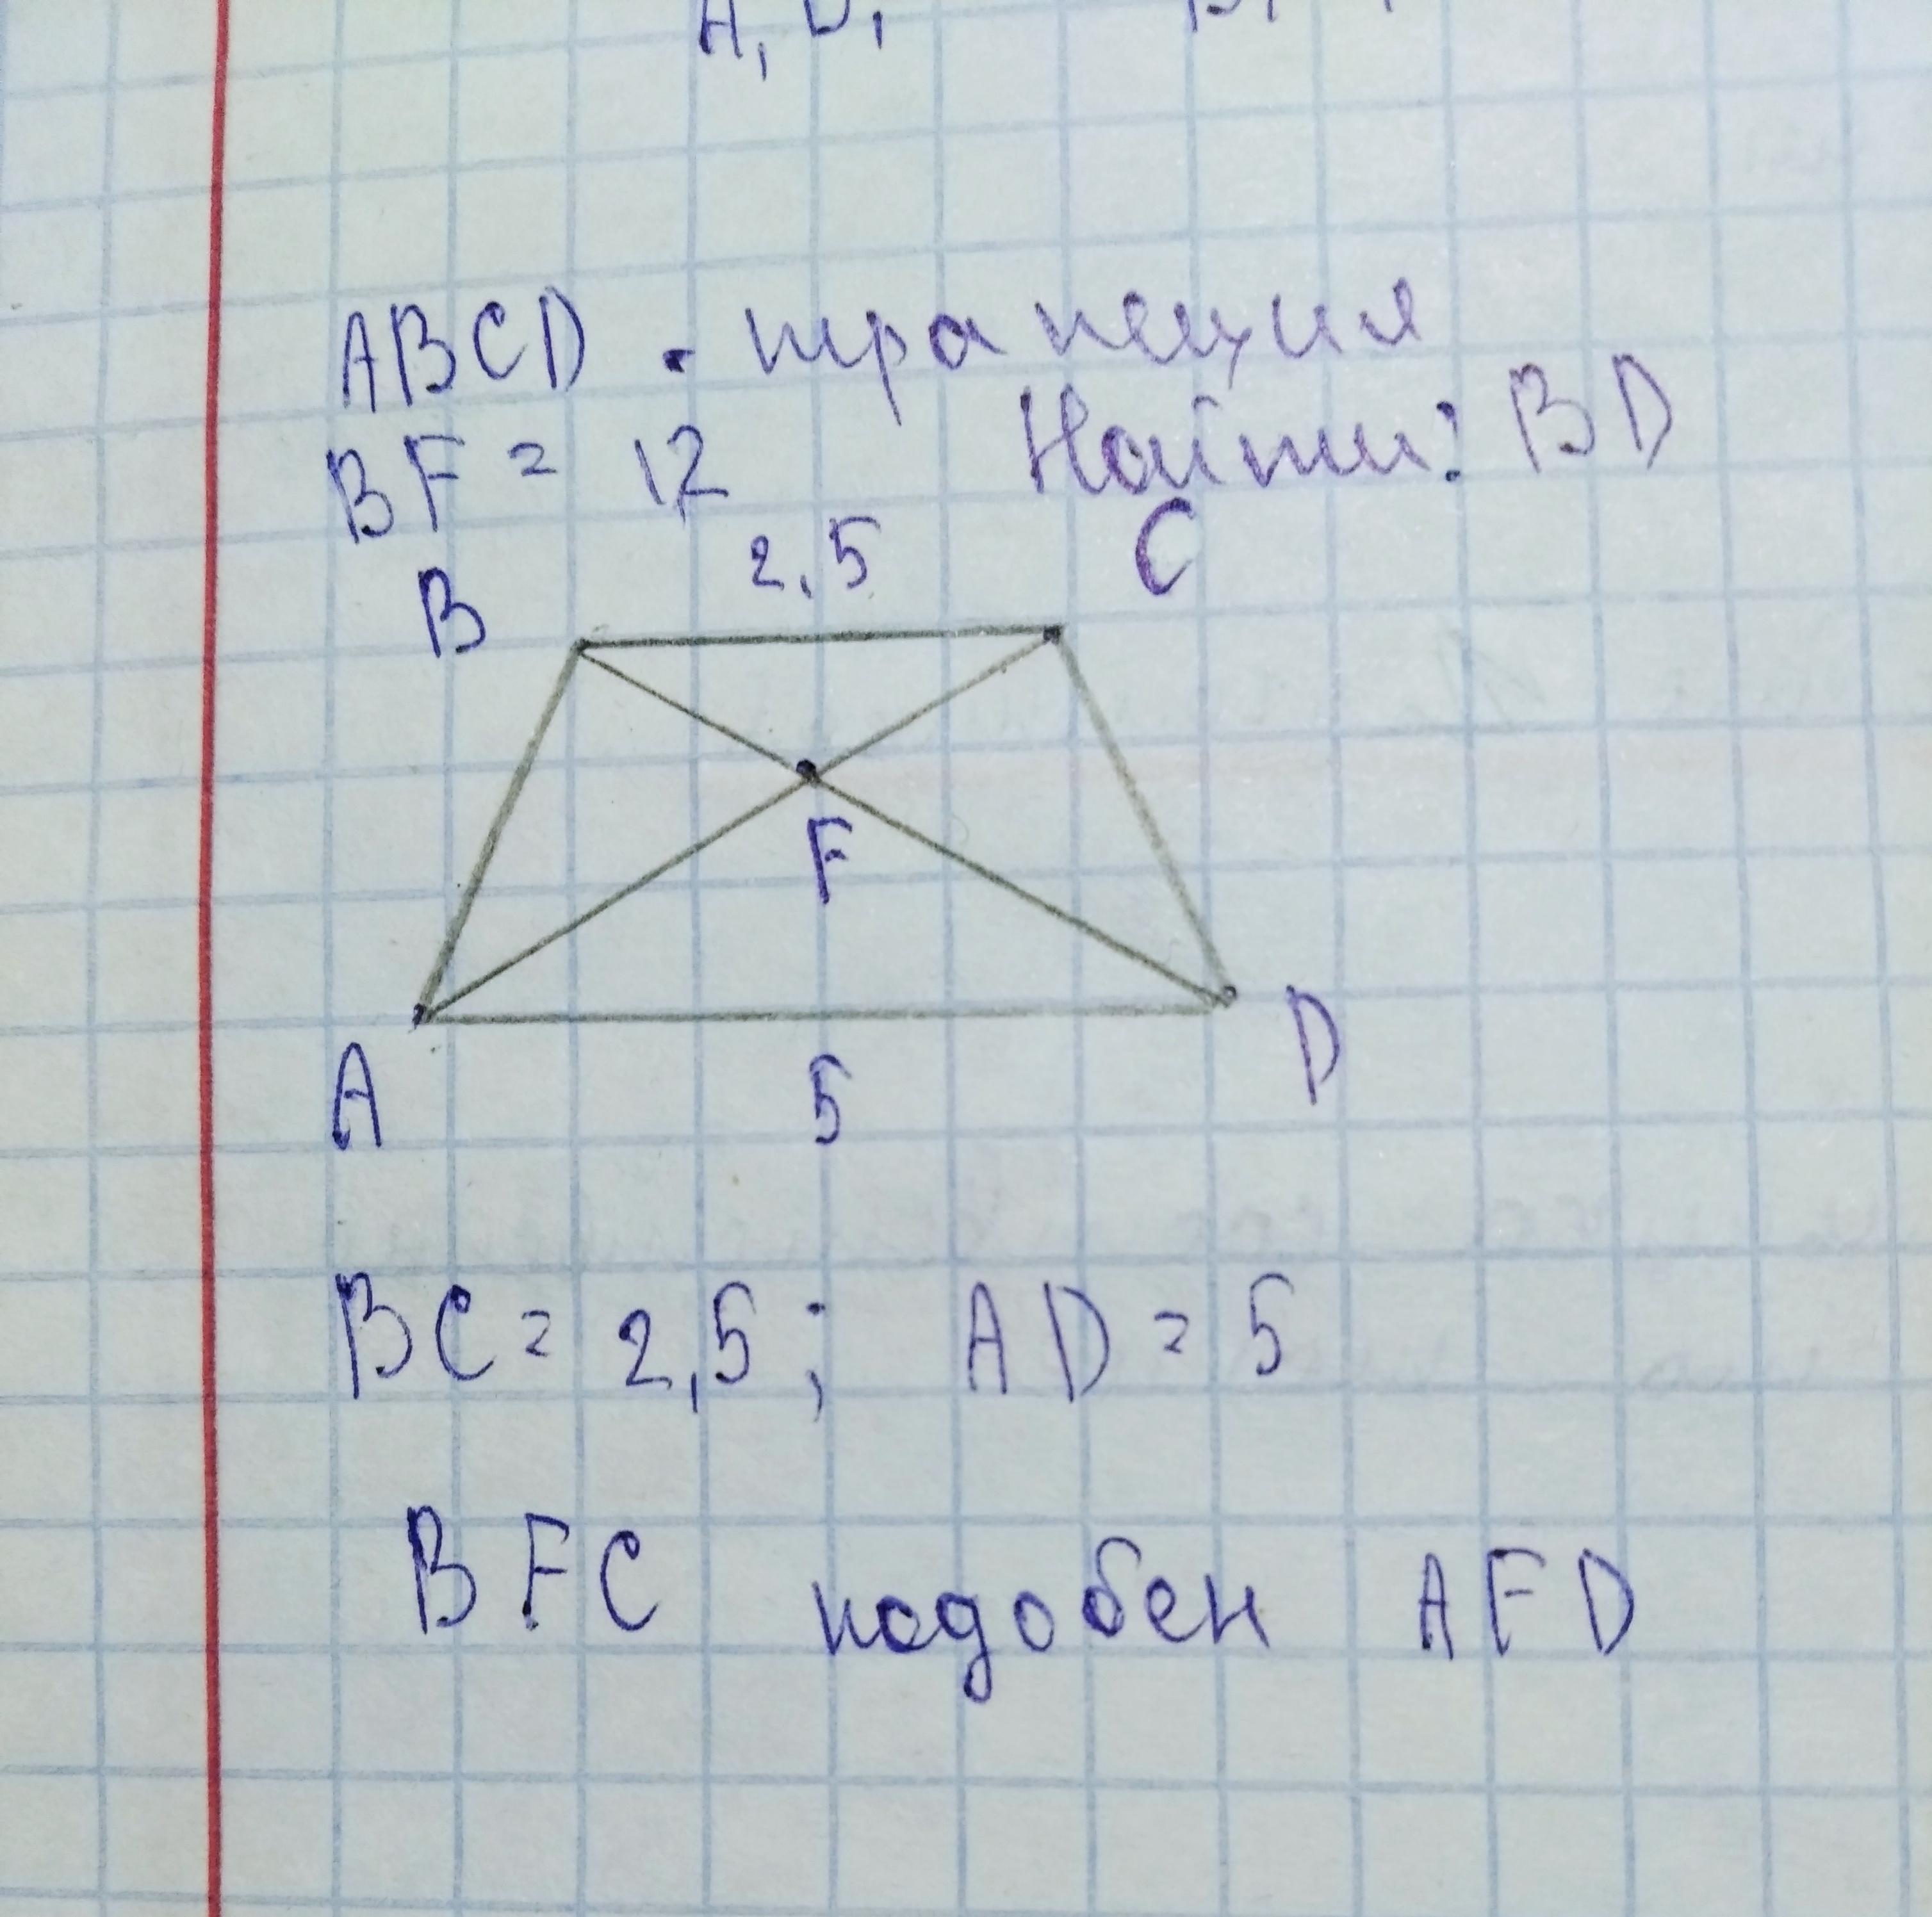 ABCD - трапеция
BF = 12 Найти: BD
B 2,5 C
F
A 5 D
BC = 2,5; AD = 5
BFC подобен AFD